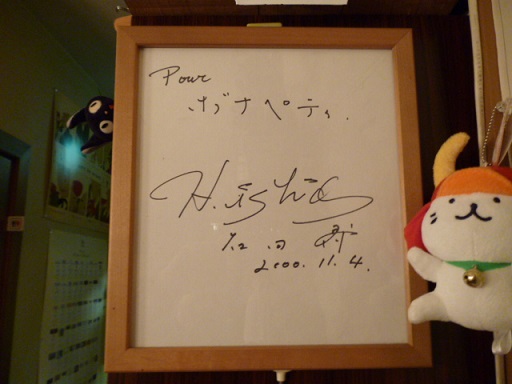 Pour
ボナペティ.
H. ishida
石田 博
2000. 11. 4.